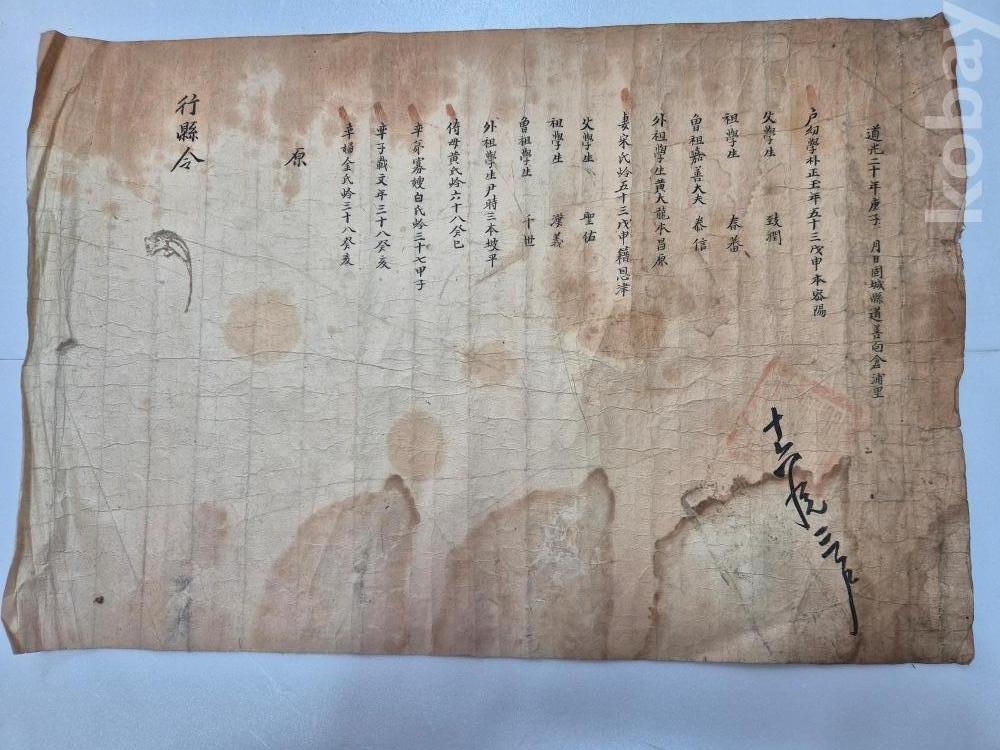 道光二十年庚子 月日固城縣道善面倉浦里
十六統三戶
戶幼學朴正玉年五十三戊申本密陽
父學生 致潤
祖學生 春蕃
曾祖嘉善大夫 泰信
外祖學生黃大龍本昌原
妻宋氏齡五十三戊申籍恩津
父學生 聖佑
祖學生 漢義
曾祖學生 千世
外祖學生尹時三本坡平
侍母黃氏齡六十八癸巳
率弟寡嫂白氏齡三十七甲子
率子載文年三十八癸亥
率婦金氏齡三十八癸亥
原
行縣令
kobay